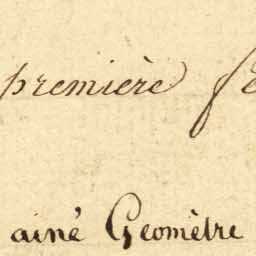 première
ainé Geomètre